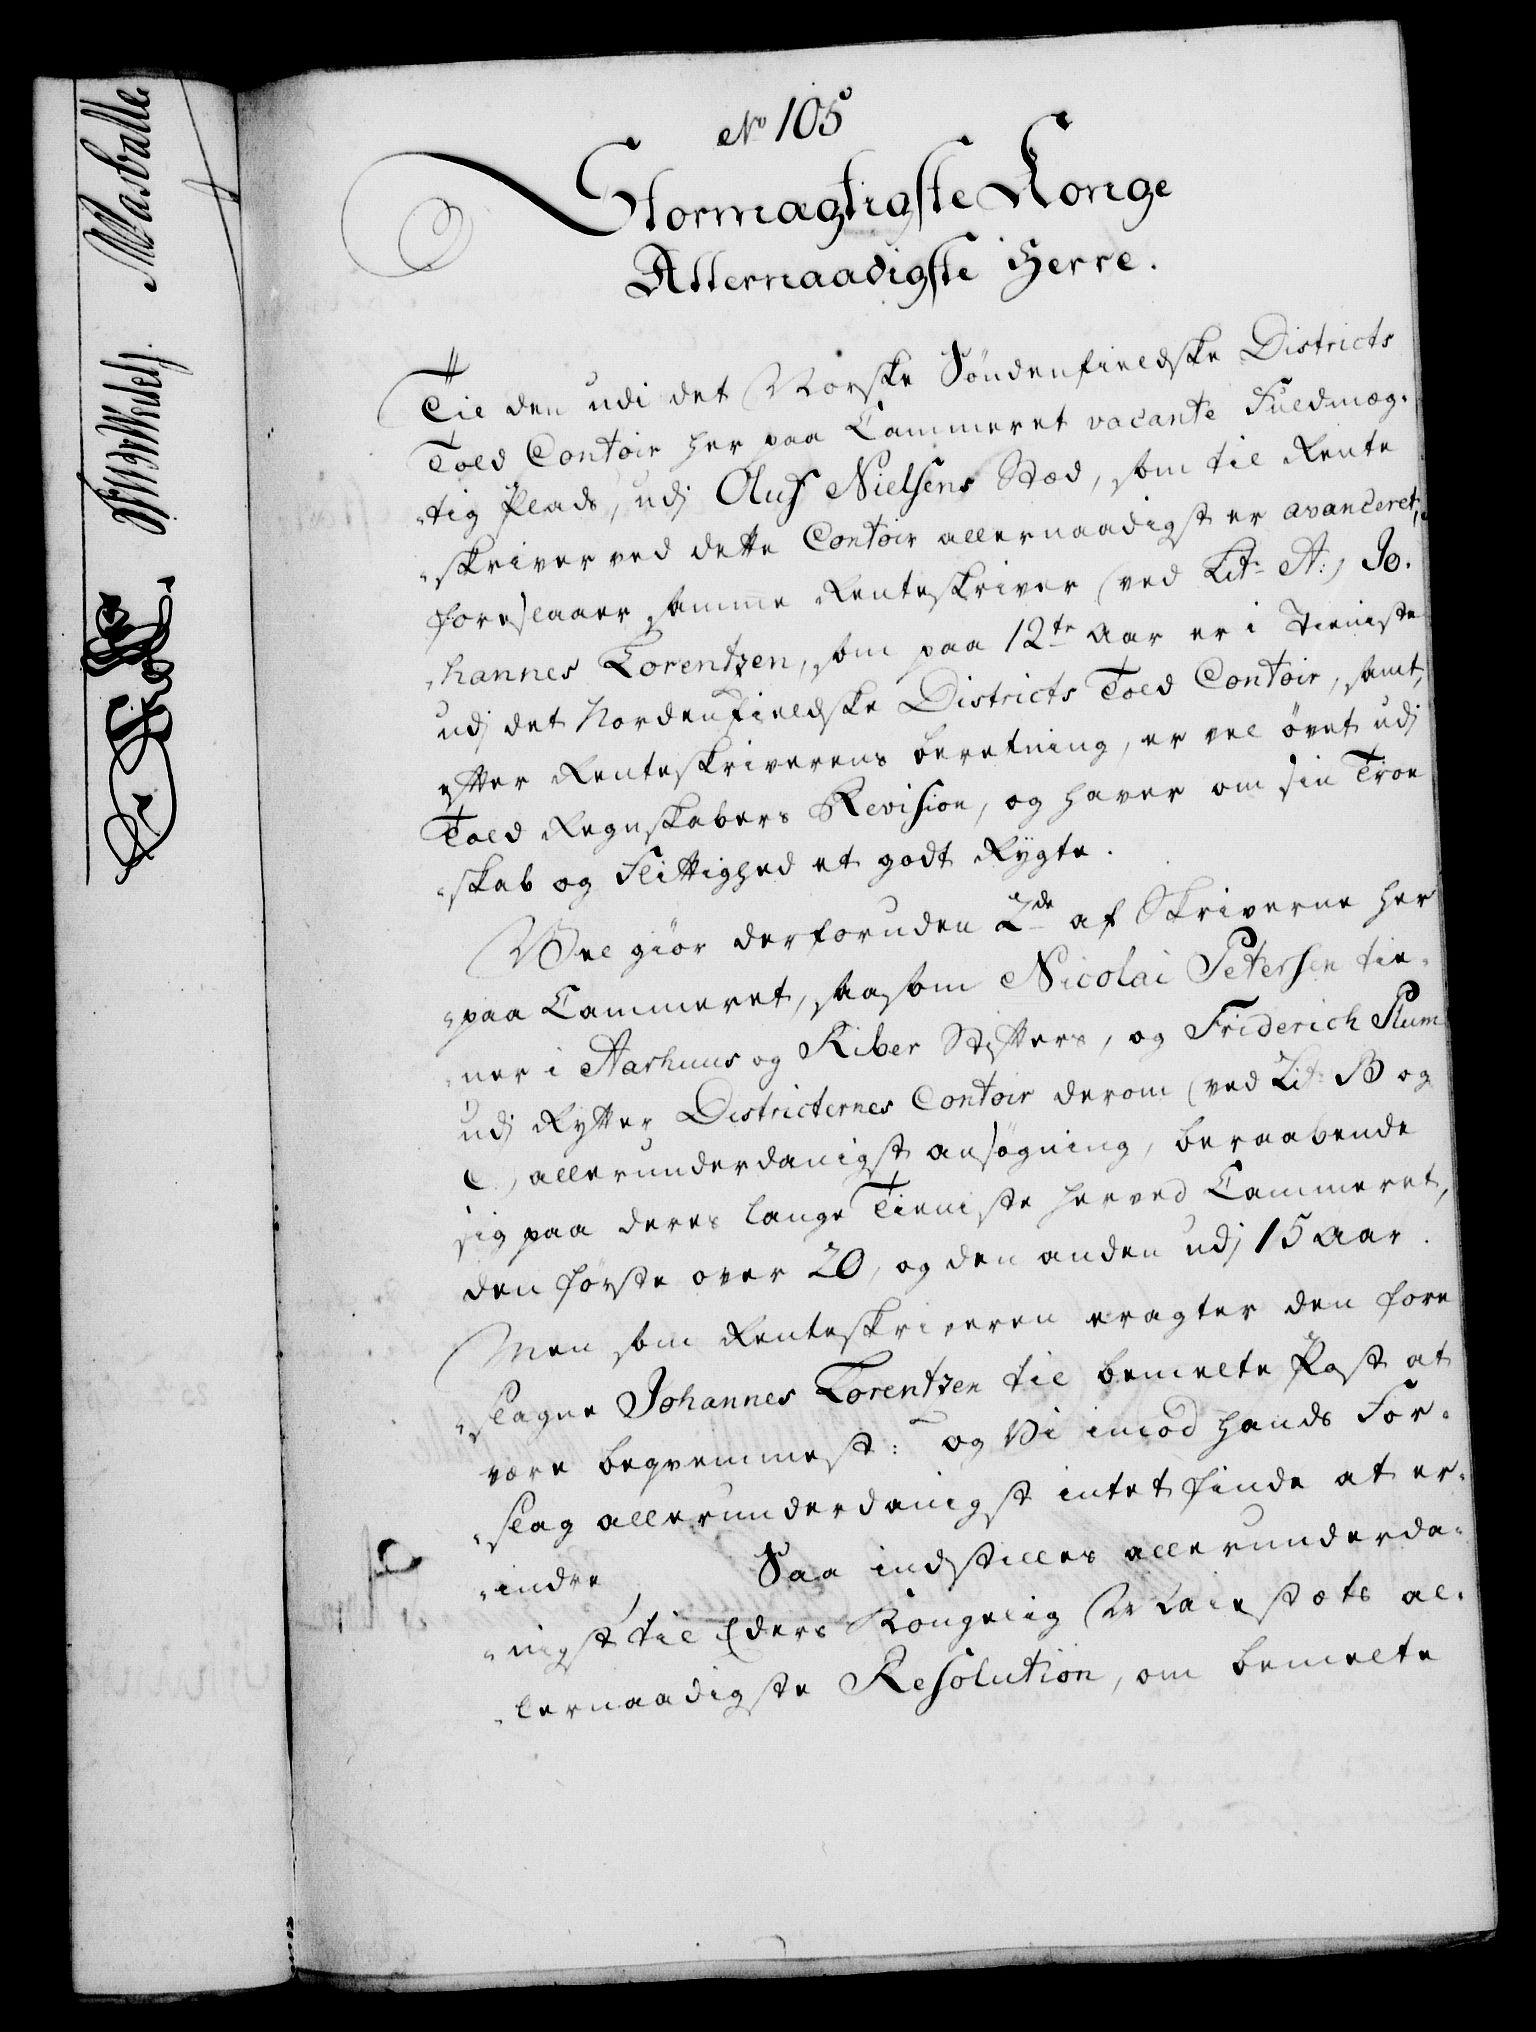 No 105
Stormagtigste Konge
Allernaadigste Herre.
Til den udi det Norske Søndenfieldske Districts
Told Contoir her paa Cammeret vacante Fuldmæg-
-tig Plads, udj Oluf Nielsens Stæd, som til Rente
-skriver ved dette Contoir allernaadigst er avanceret,
foreslaaer samme Renteskriver (ved Lit: A:) Jo-
-hannes Lorentzen, som paa 12te Aar er i Tieniste
udj det Nordenfieldske Districts Told Contoir, samt,
efter Renteskriverens beretning, er vel øvet udj
Told Regnskabers Revision, og haver om sin Troe
-skab og Flittighed et godt Rygte.
Vel giør derforuden 2de af Skriverne her
-paa Cammeret, saasom Nicolai Petersen tie-
-ner i Aarhuus og Riber Stifters, og Friderich Plum
udj Rytter Districternes Contoir derom (ved Lit: B og
C.) allerunderdanigst ansøgning, beraabende
sig paa deres lange Tieniste her ved Cammeret,
den første over 20, og den anden udj 15 Aar.
Men som Renteskriveren eragter den fore
-slagne Johannes Lorentzen til bemelte Post at
være beqvemmest: og Vi imod hands For-
-slag allerunderdanigst intet finde at er-
-indre, Saa indstilles allerunderda-
-nigst til Eders Kongelig Maiestæts al-
-lernaadigste Resolution, om bemelte